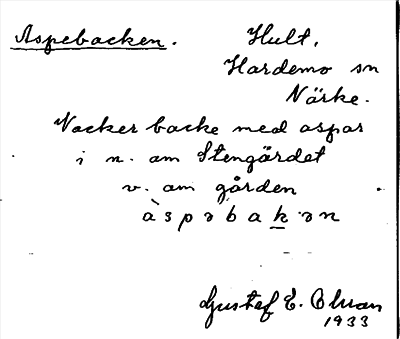 Aspebacken.
Hult,
Hardemo sn
Närke.
Vacker backe med aspar
i n. am Stengärdet
v. am gården
àspəbakən
Gustaf E.
1933